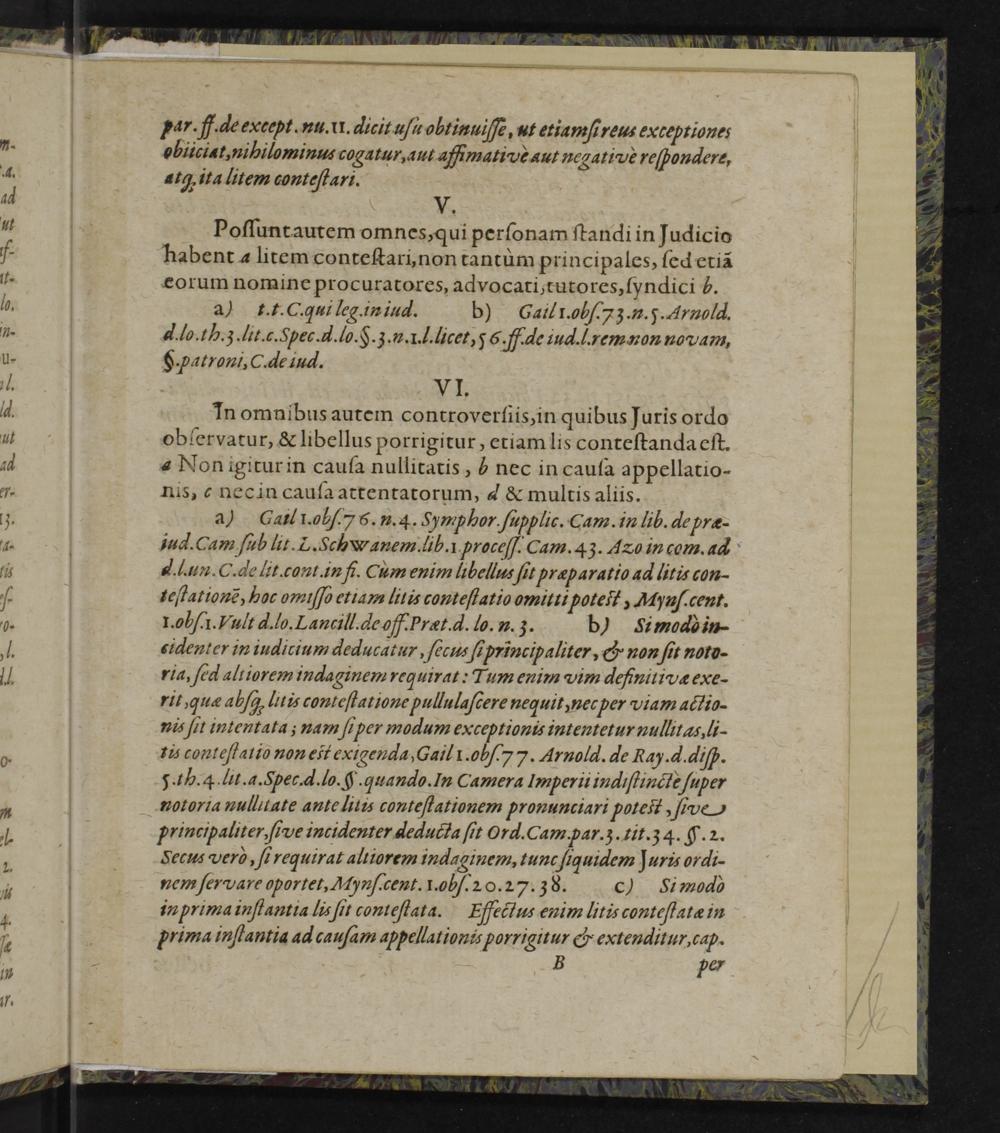 par. ff. de except. nu. 11. dicit usu obtinuisse, ut etiamsi reus exceptiones
obiiciat, nihilominus cogatur, aut affirmativè aut negativè respondere,
atq; ita litem contestari.
V.
Possunt autem omnes, qui personam standi in Judicio
habent a litem contestari, non tantùm principales, sed etiã
eorum nomine procuratores, advocati, tutores, syndici b.
a) t.t. C. qui leg. in iud. b) Gail 1. obs. 73. n. 5. Arnold.
d. lo. th. 3. lit. c. Spec. d. lo. §. 3. n. 1. l. licet, 56. ff. de iud. l. rem non novam,
§. patroni, C. de iud.
VI.
In omnibus autem controversiis, in quibus Juris ordo
observatur, & libellus porrigitur, etiam lis contestanda est.
a Non igitur in causa nullitatis, b nec in causa appellatio-
nis, c nec in causa attentatorum, d & multis aliis.
a) Gail 1. obs. 76. n. 4. Symphor. supplic. Cam. in lib. de præ-
iud. Cam sub lit. L. Schwanem. lib. 1 process. Cam. 43. Azo in com. ad
d. l. un. C. de lit. cont. in fi. Cùm enim libellus sit præparatio ad litis con-
testationẽ, hoc omisso etiam litis contestatio omitti potest, Myns. cent.
1. obs. 1. Vult d. lo. Lancill. de off. Præt. d. lo. n. 3. b) Si modò in-
cidenter in iudicium deducatur, secus si principaliter, & non sit noto-
ria, sed altiorem indaginem requirat: Tum enim vim definitivæ exe-
rit, quæ absq; litis contestatione pullulascere nequit, nec per viam actio-
nis sit intentata; nam si per modum exceptionis intentetur nullitas, li-
tis contestatio non est exigenda, Gail 1. obs. 77. Arnold. de Ray. d. disp.
5. th. 4. lit. a. Spec. d. lo. §. quando. In Camera Imperii indistincte super
notoria nullitate ante litis contestationem pronunciari potest, sive
principaliter, sive incidenter deducta sit Ord. Cam. par. 3. tit. 34. §. 2.
Secus verò, si requirat altiorem indaginem, tunc siquidem Juris ordi-
nem servare oportet, Myns. cent. 1. obs. 20. 27. 38. c) Si modò
in prima instantia lis sit contestata. Effectus enim litis contestatæ in
prima instantia ad causam appellationis porrigitur & extenditur, cap.
B per